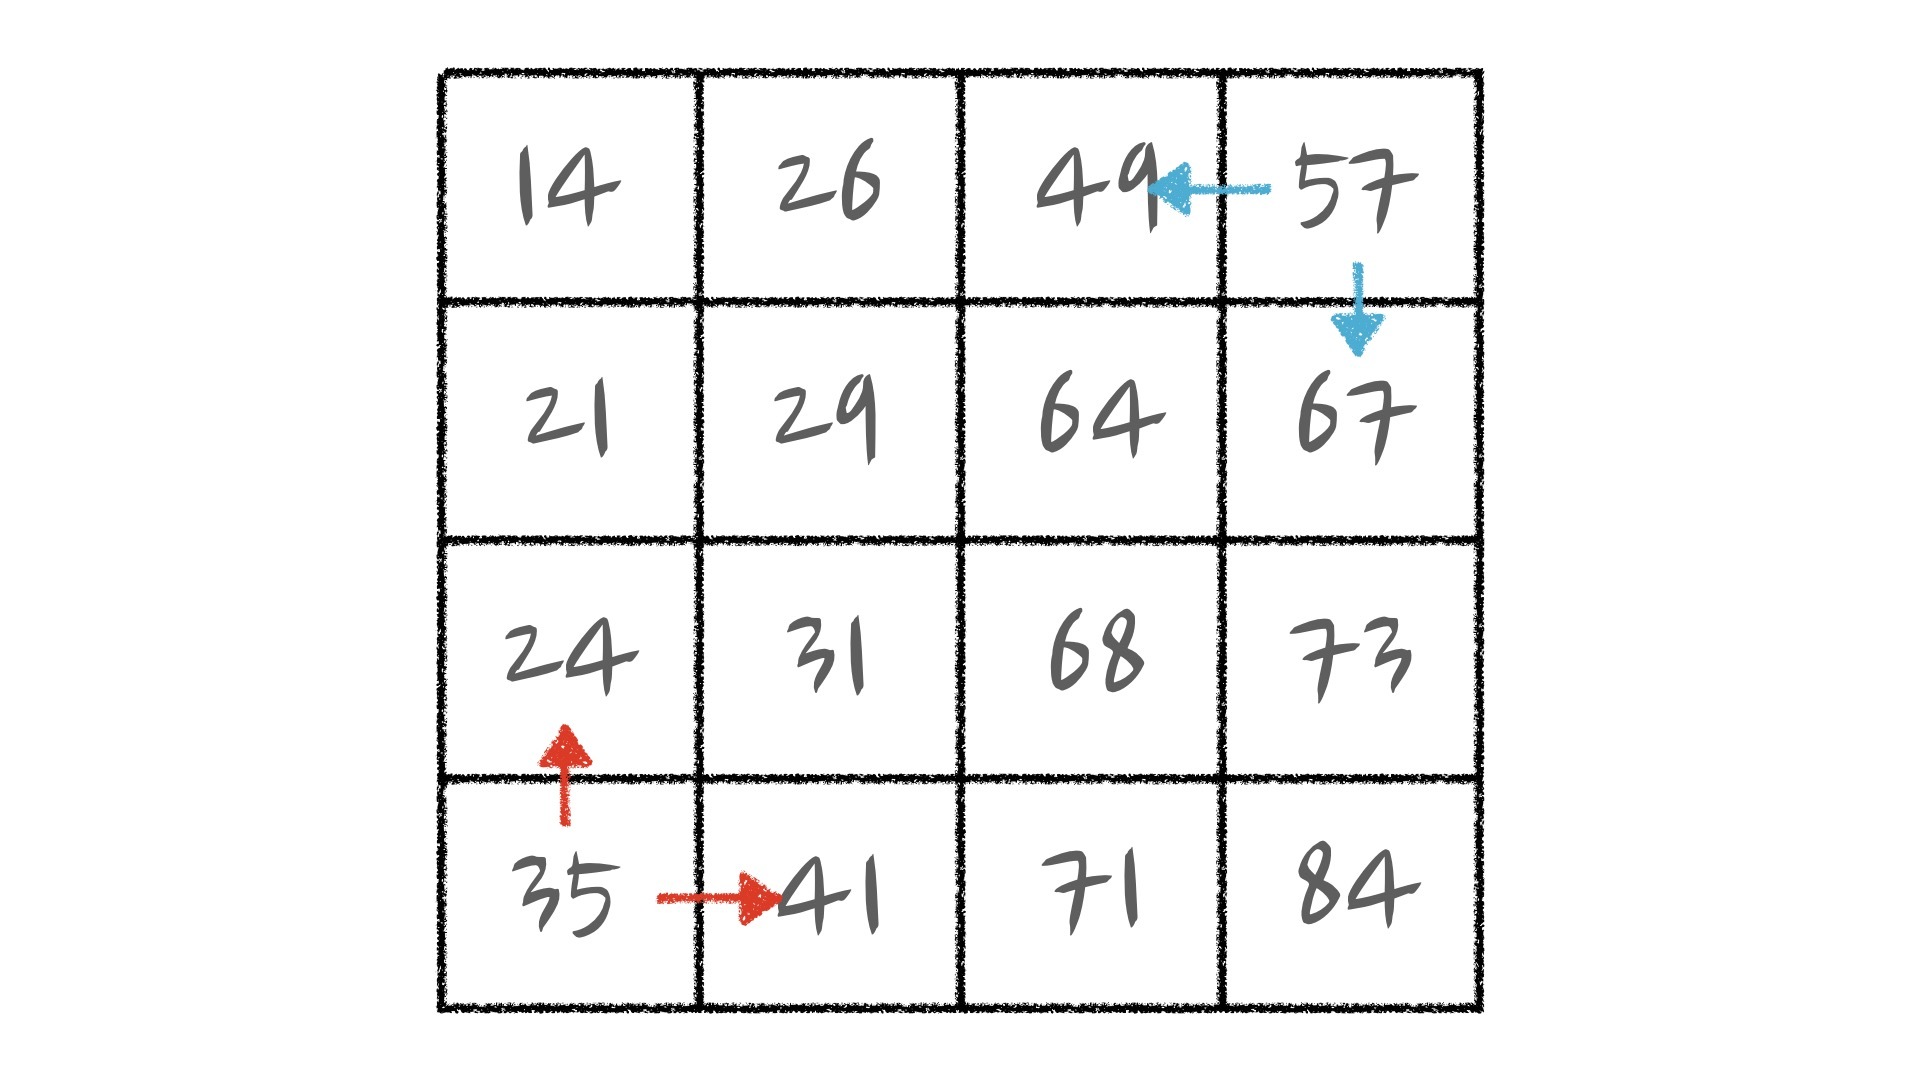 14 26 49 57
21 29 64 67
24 31 68 73
35 41 71 84